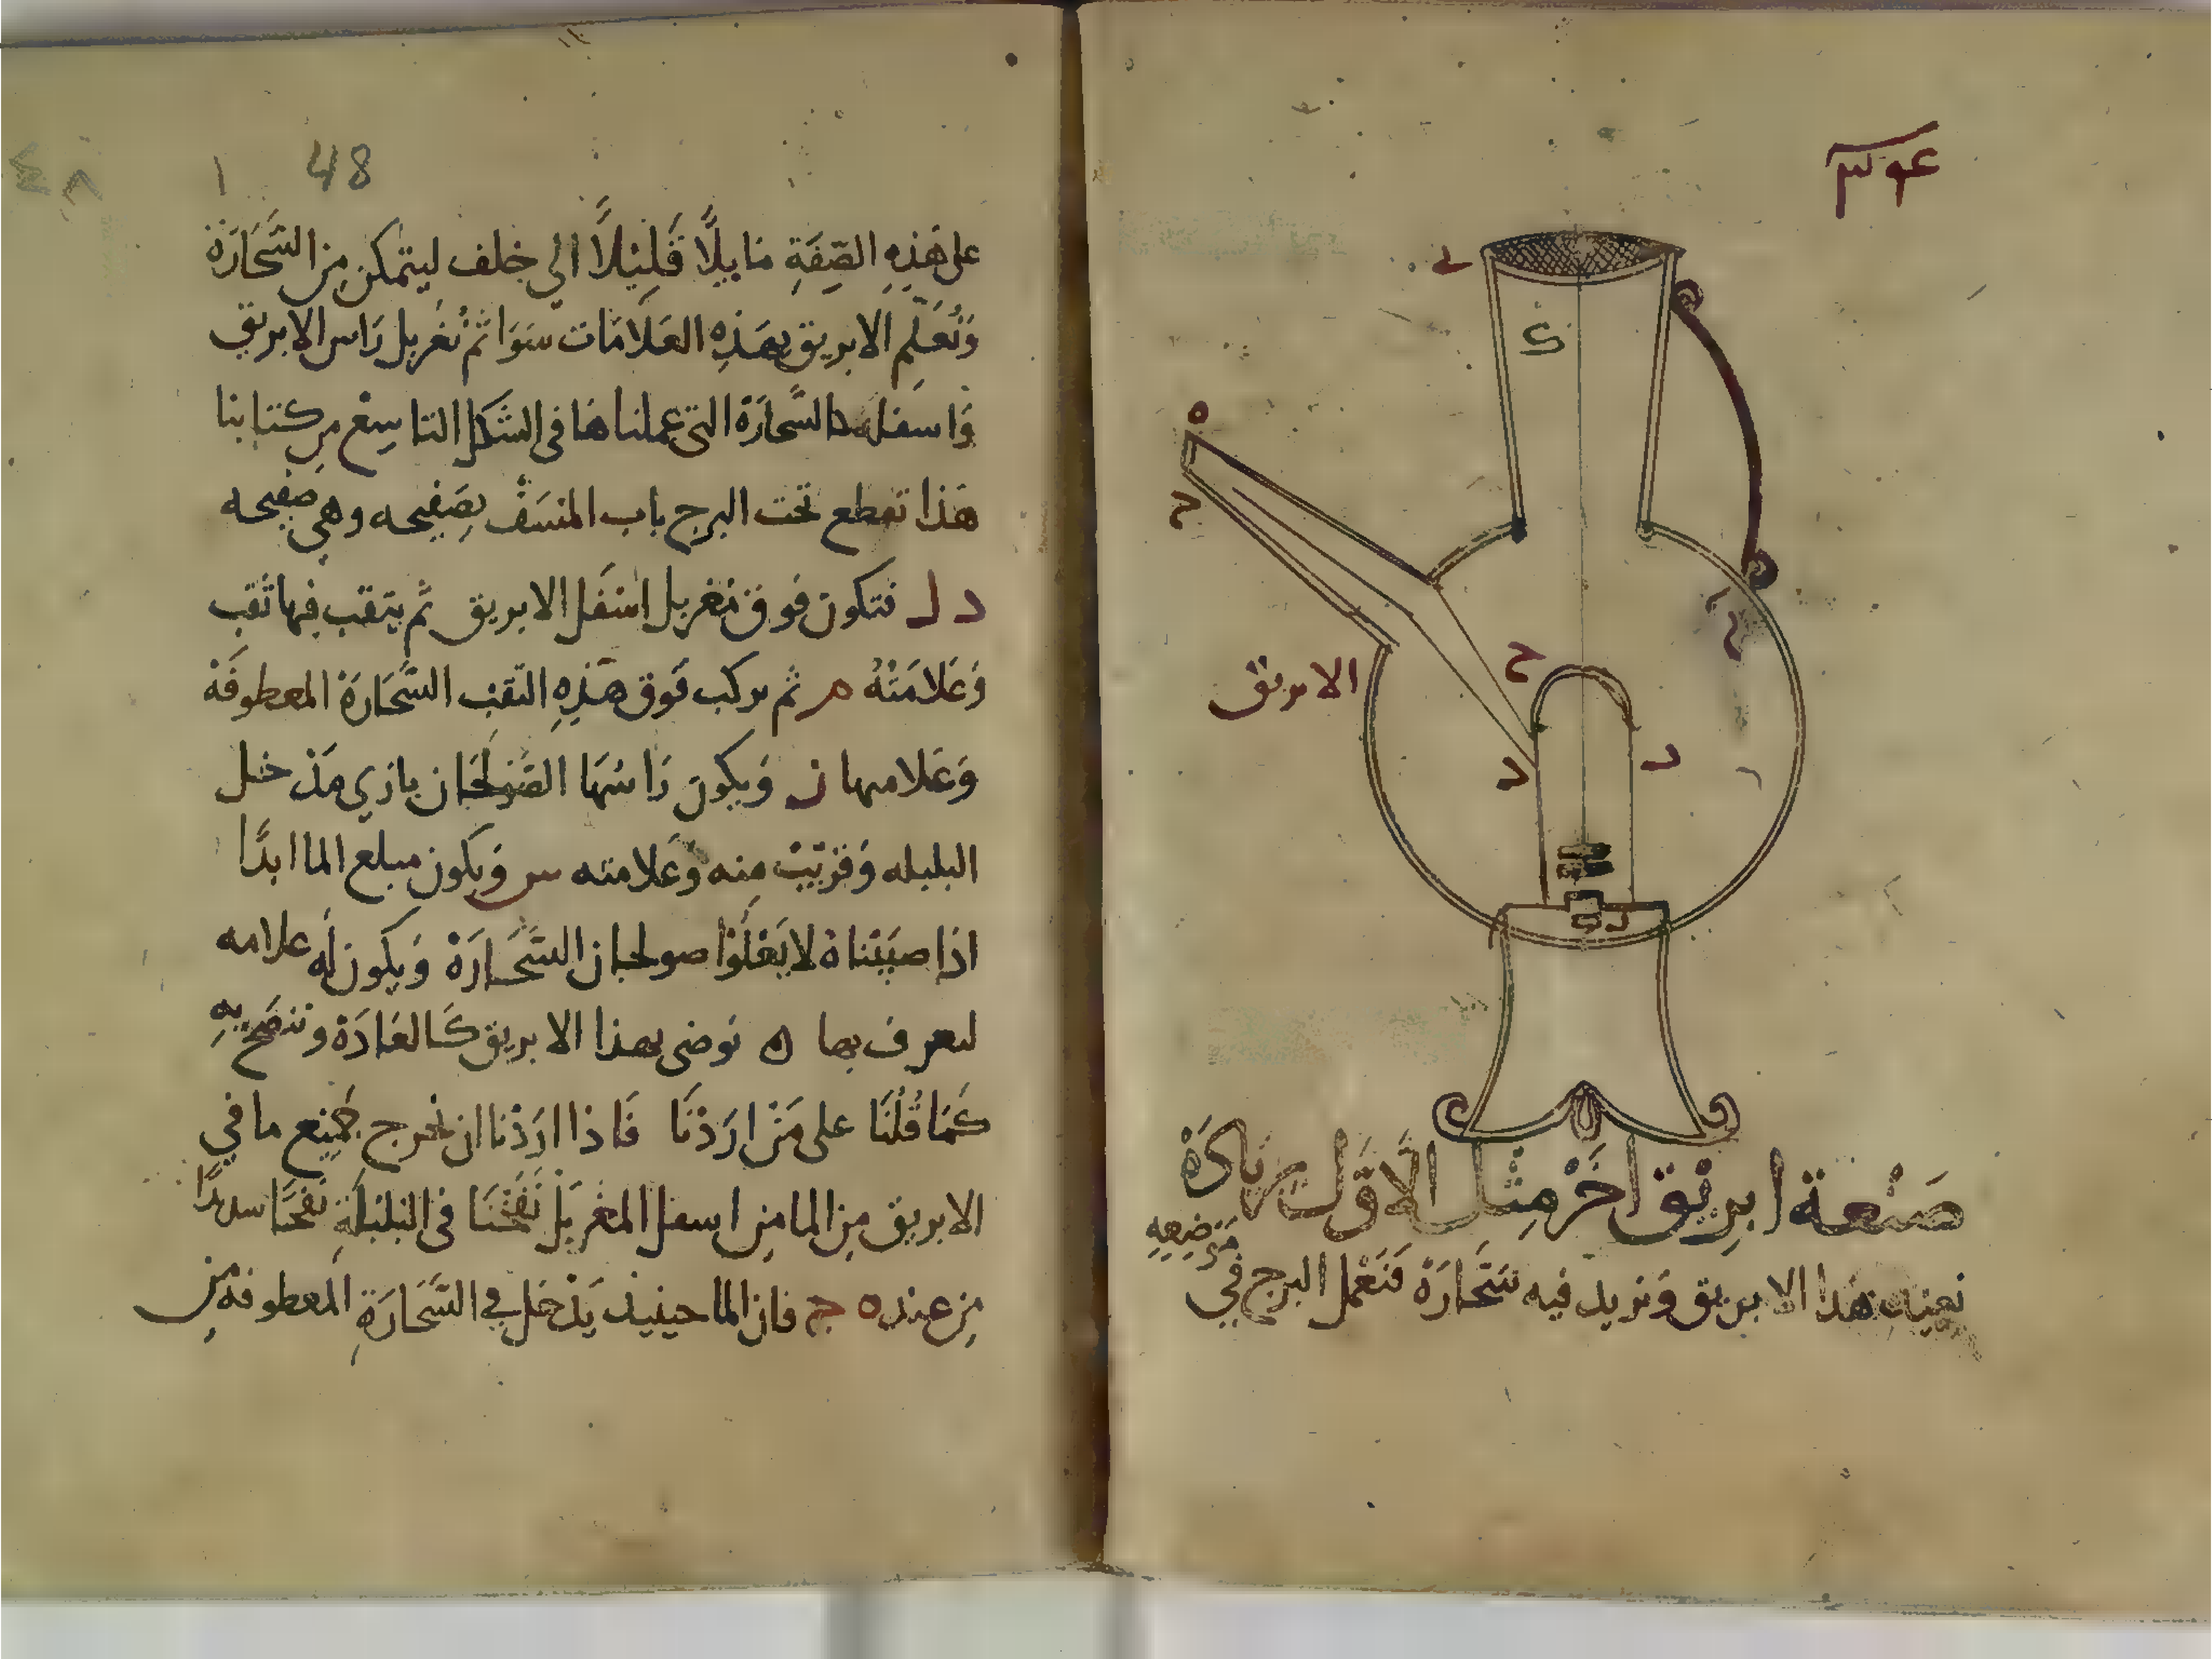 ے
ک
ه
ج
ح
الابريق
د
د
صَنْعة ابرِيْق اخَرْ مِثل الاَوَّل بزيادَةْ
نعيد هَذا الابريق وَنزيد فيه سَحَّارَةْ فنَعْمل البرج في مَوضِعِهِ
48
٤٨
على هَذِهِ الصِّفَةِ مَايلًا قَلِيْلًا الي خلف ليتمكن مِن السَّحَارَة
وَنُعَلّم الابريق بهَذِهِ العَلامَات سَوَا ثم نُغَربل رَاس الابريق
وَاسفله السَّحارَة التى عملناها فى الشكل التاسِعْ مِن كتابنا
هَذا تقطع تحت البرج باب المنسَف بصَفِيحه وهي صفيحه
د ل فتكون فوق مغربل اسفل الابريق ثم يثقب فيها ثقب
وَعَلامَتْهُ م ثم يركب فوق هَذِهِ الثقبْ السَّحَارَة المعطوفَة
وَعَلامتها ن وَيكون رَاسُهَا الصَّولَجَان بازي مَدْخل
البلبله وَقرْيبْ مِنه وَعَلامته س وَيكون مبلع الما ابدًا
اذا صبَبْنَاهْ لا يَعْلُوْا صولجان السَّحَارَةْ وَيكون لهُ علامه
لتعرف بها ن نوضى بهذا الابريق كَالعَادَة وننضح بِهِ
كَمَا قُلْنَا على مَنْ ارَدْنَا فَاذا ارَدْنا ان نخرج جميع ما في
الابريق مِن الما مِن اسفل المغربَلْ نَفَخْنَا فى البَلبَلَةِ نفخًا سديدًا
مِن عند ه ج فان الما حينيذ يَدْخل في السَّحَارَةِ المعطوفة مِن